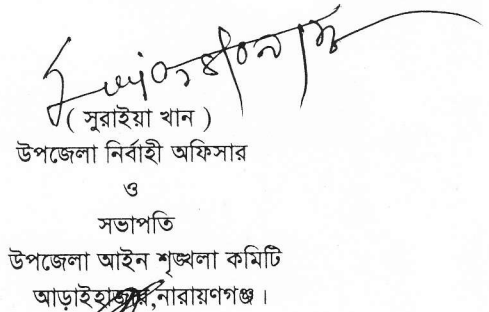 ( সুরাইয়া খান )
উপজেলা নির্বাহী অফিসার
ও
সভাপতি
উপজেলা আইন শৃঙ্খলা কমিটি
আড়াইহাজার,নারায়ণগঞ্জ।